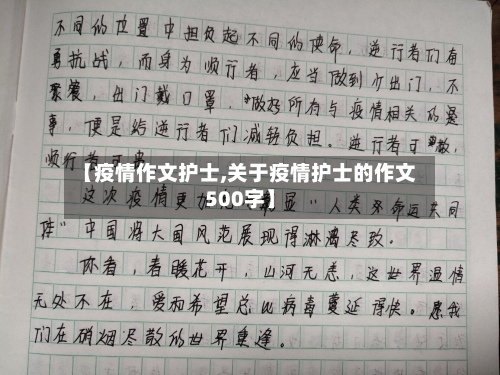 不同的位置中担负起不同的使命，逆行者们奋
勇抗战，而身为顺行者，应当做到少出门，不
聚餐，出门戴口罩，做好所有与疫情相关的
事，便是给逆行者们减轻负担。逆行者可敬，
顺行者可
【疫情作文护士,关于疫情护士的作文
500字】
这次疫情更加 显"人类 命运共同
体"中国将大国风范展现得淋漓尽致。
你看，春暖花开，山河无恙，这世界温情
无处不在，爱和希望总比病毒蔓延得快。愿我
们在硝烟尽散的世界重逢。